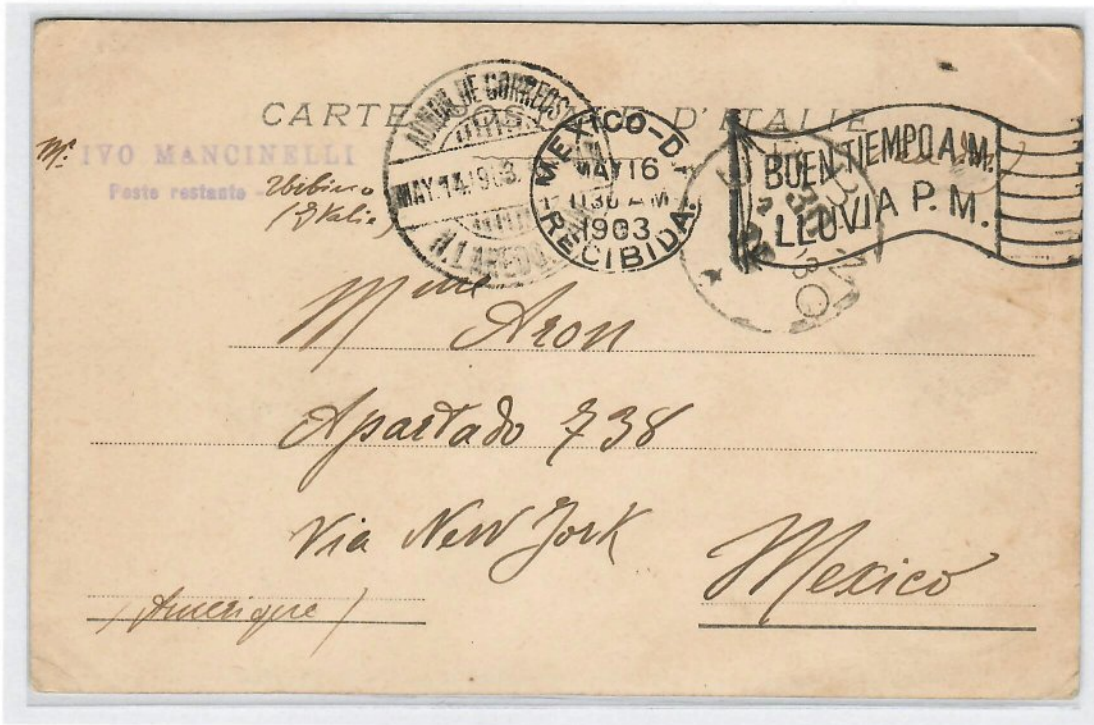 CARTE POSTALE D'ITALIE
Mr. IVO MANCINELLI
Poste restante -
Urbino
(Italie)
ADMON. DE CORREOS
MAY. 14. 1903.
N. LAREDO.
MEXICO-D.F.
MAY 16
11 30 A M
1903
RECIBIDA.
BUEN TIEMPO A.M.
LLUVIA P. M.
Mme Aron
Apartado 738
Via New York
Mexico
(Amerique)